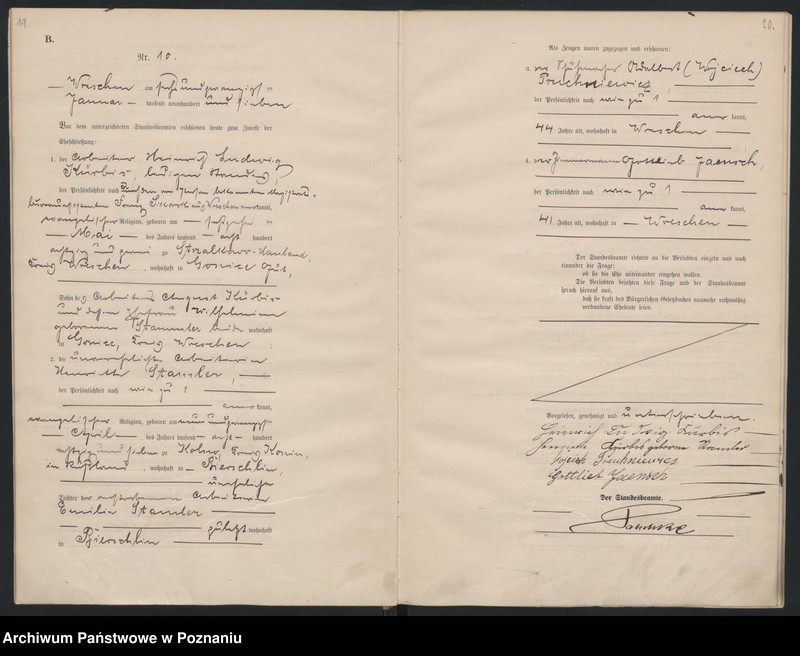 19.
B.
Nr. 10.
Wreschen am sechsundzwanzigsten
Januar tausend neunhundert und sieben
Vor dem unterzeichneten Standesbeamten erschienen heute zum Zwecke der
Eheschließung:
1. der Arbeiter Heinrich Ludwig
Kürbis, ledigen Standes,
der Persönlichkeit nach
Wreschen kannt,
evangelischer Religion, geboren am
Mai des Jahres tausend acht hundert
achtzig und zu Strzalkowo-Hauland,
Kreis Wreschen, wohnhaft in Gonice Gut,
Sohn des Arbeiters August Kürbis
und dessen Ehefrau Wilhelmine
geborenen Stammler beide wohnhaft
in Gonice, Kreis Wreschen
2. die unverehelichte Arbeiterin
Henriette Stamler,
der Persönlichkeit nach wie zu 1
anerkannt,
evangelischer Religion, geboren am neunundzwanzigsten
April des Jahres tausend acht hundert
achtzig und sieben zu Kolno, Kreis Konin,
in Rußland, wohnhaft in Bierschlin,
uneheliche
Tochter der verstorbenen Arbeiterin
Emilie Stamler
zuletzt wohnhaft
in Bierschlin
20.
Als Zeugen waren zugezogen und erschienen:
3. der Schuhmacher Adalbert (Wojciech)
Pruchniewicz,
der Persönlichkeit nach wie zu 1
anerkannt,
44 Jahre alt, wohnhaft in Wreschen
4. der Zimmermann Gottlieb Jaensch,
der Persönlichkeit nach wie zu 1
anerkannt,
41 Jahre alt, wohnhaft in Wreschen
Der Standesbeamte richtete an die Verlobten einzeln und nach
einander die Frage:
ob sie die Ehe miteinander eingehen wollen.
Die Verlobten bejahten diese Frage und der Standesbeamte
sprach hierauf aus,
daß sie kraft des Bürgerlichen Gesetzbuchs nunmehr rechtmäßig
verbundene Eheleute seien.
Vorgelesen, genehmigt und unterschrieben.
Heinrich Ludwig Kürbis
Kürbis geborne Stamler
Wojciech Pruchniewicz
Gottlieb Jaensch
Der Standesbeamte.
Archiwum Państwowe w Poznaniu